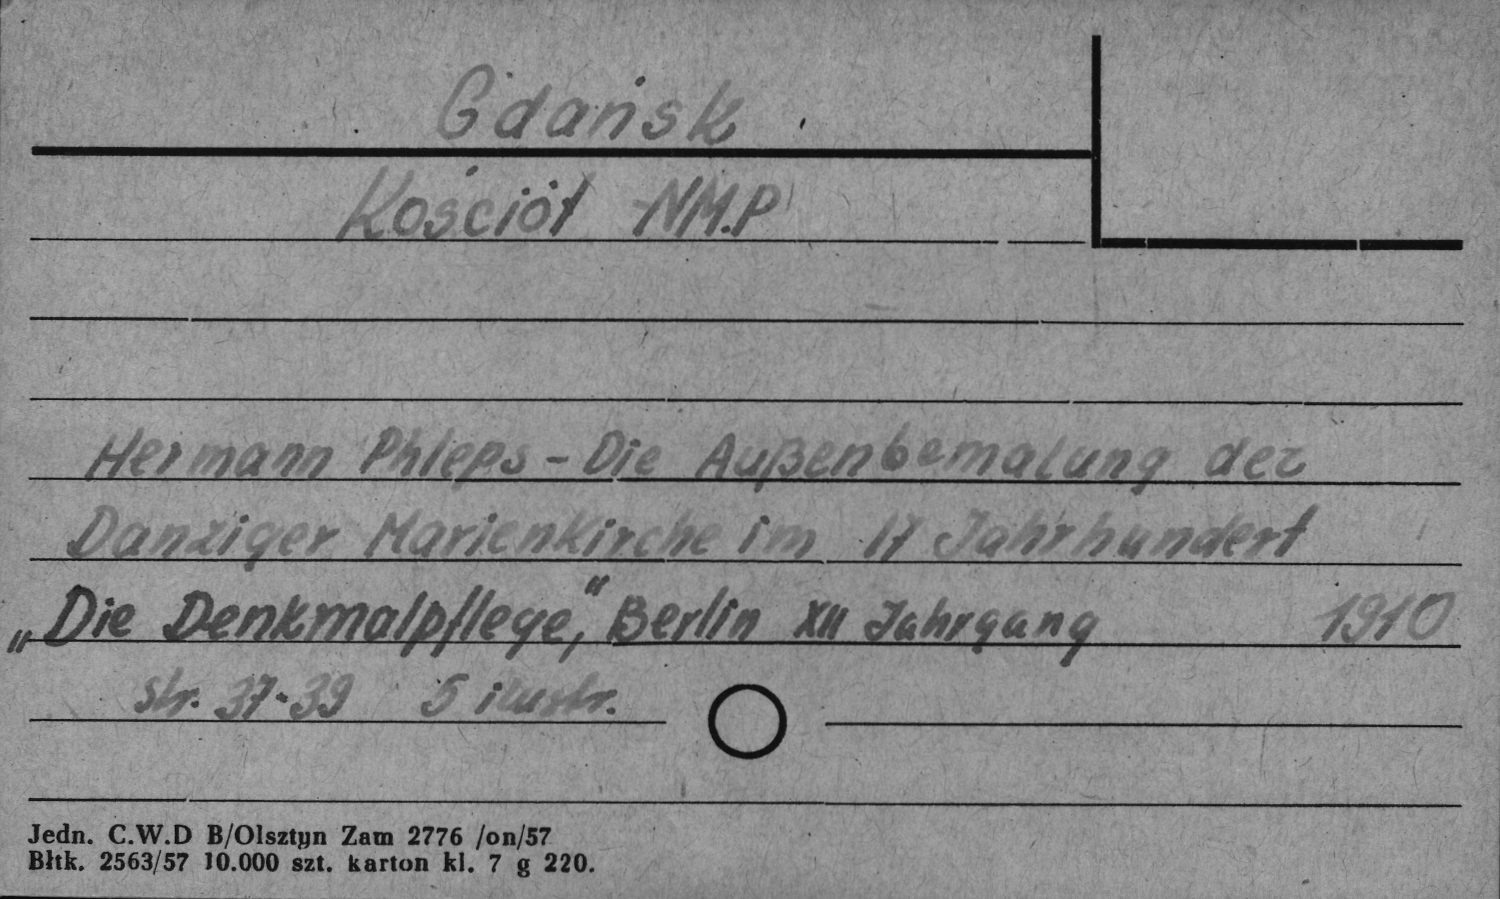 Gdańsk
Kościół NM.P
Hermann Phleps - Die Außenbemalung der
Danziger Marienkirche im 17 Jahrhundert
„Die Denkmalpflege," Berlin XII Jahrgang 1910
str. 37-39 5 ilustr.
Jedn. C.W.D B/Olsztyn Zam 2776 /on/57
Błtk. 2563/57 10.000 szt. karton kl. 7 g 220.